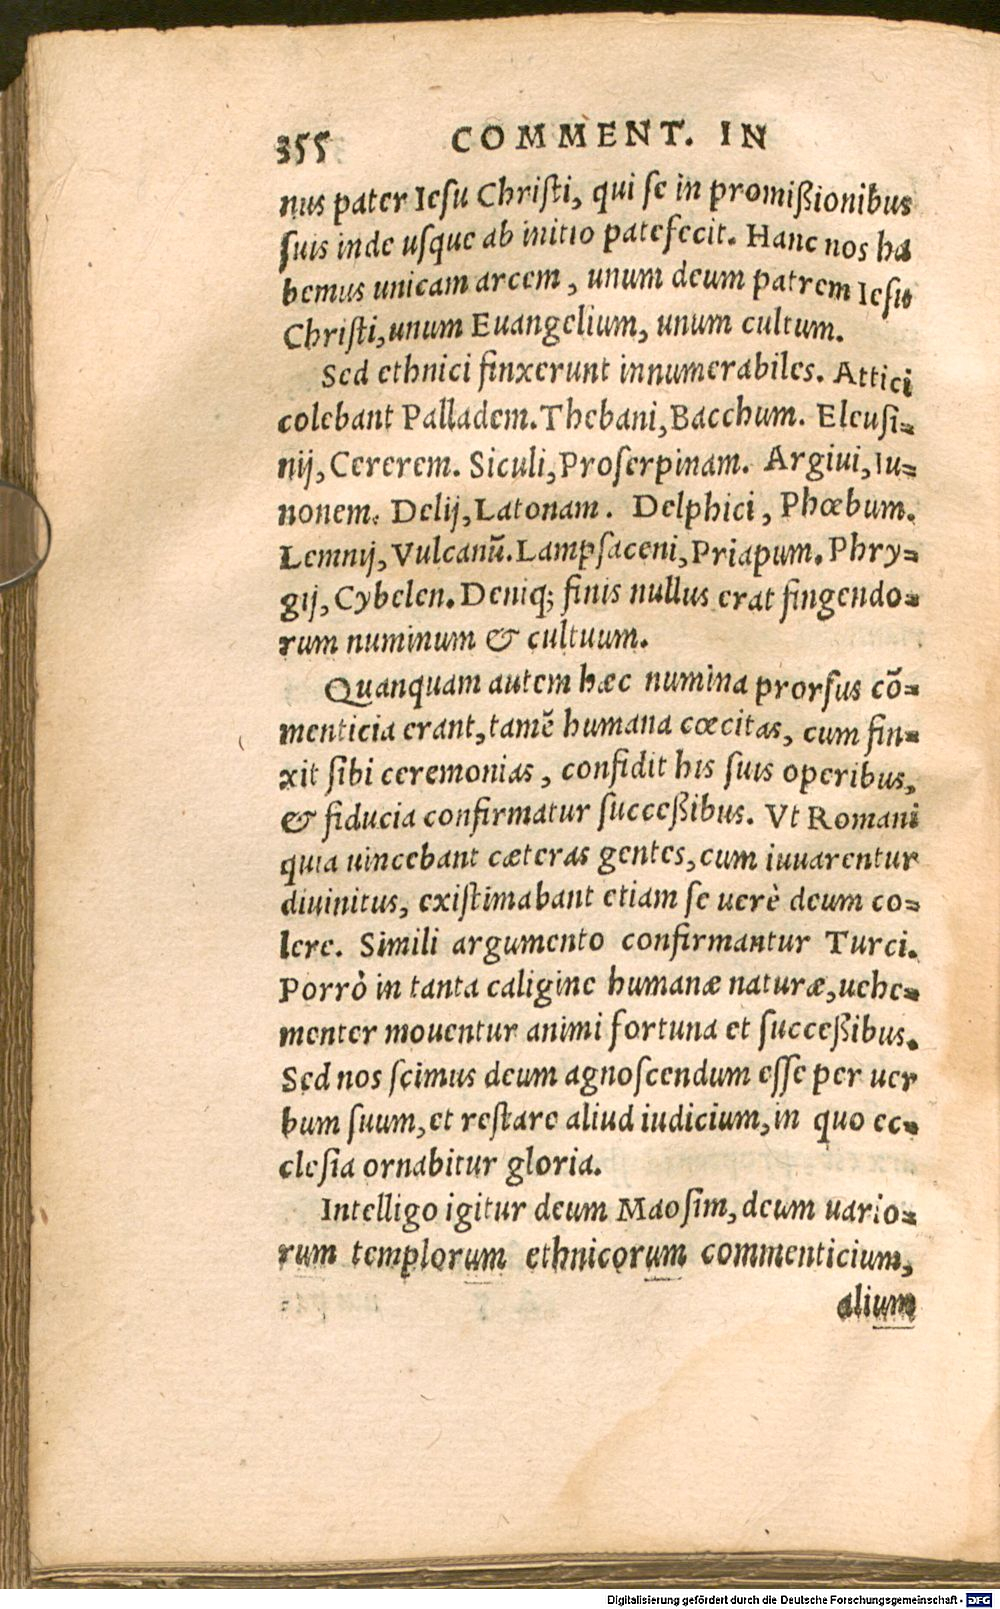 355 COMMENT. IN
nus pater Iesu Christi, qui se in promißionibus
suis inde usque ab initio patefecit. Hanc nos ha
bemus unicam arcem, unum deum patrem Iesu
Christi, unum Euangelium, unum cultum.
Sed ethnici finxerunt innumerabiles. Attici
colebant Palladem. Thebani, Bacchum. Eleusi=
nij, Cererem. Siculi, Proserpinam. Argiui, Iu=
nonem. Delij, Latonam. Delphici, Phœbum.
Lemnij, Vulcanũ. Lampsaceni, Priapum. Phry=
gij, Cybelen. Deniq; finis nullus erat fingendo=
rum numinum & cultuum.
Quanquam autem hæc numina prorsus cõ=
menticia erant, tamẽ humana cœcitas, cum fin=
xit sibi ceremonias, confidit his suis operibus,
& fiducia confirmatur succeßibus. Vt Romani
quia uincebant cæteras gentes, cum iuuarentur
diuinitus, existimabant etiam se uerè deum co=
lere. Simili argumento confirmantur Turci.
Porrò in tanta caligine humanæ naturæ, uehe=
menter mouentur animi fortuna et succeßibus.
Sed nos scimus deum agnoscendum esse per uer
bum suum, et restare aliud iudicium, in quo ec=
clesia ornabitur gloria.
Intelligo igitur deum Maosim, deum uario=
rum templorum ethnicorum commenticium,
alium
Digitalisierung gefördert durch die Deutsche Forschungsgemeinschaft - DFG